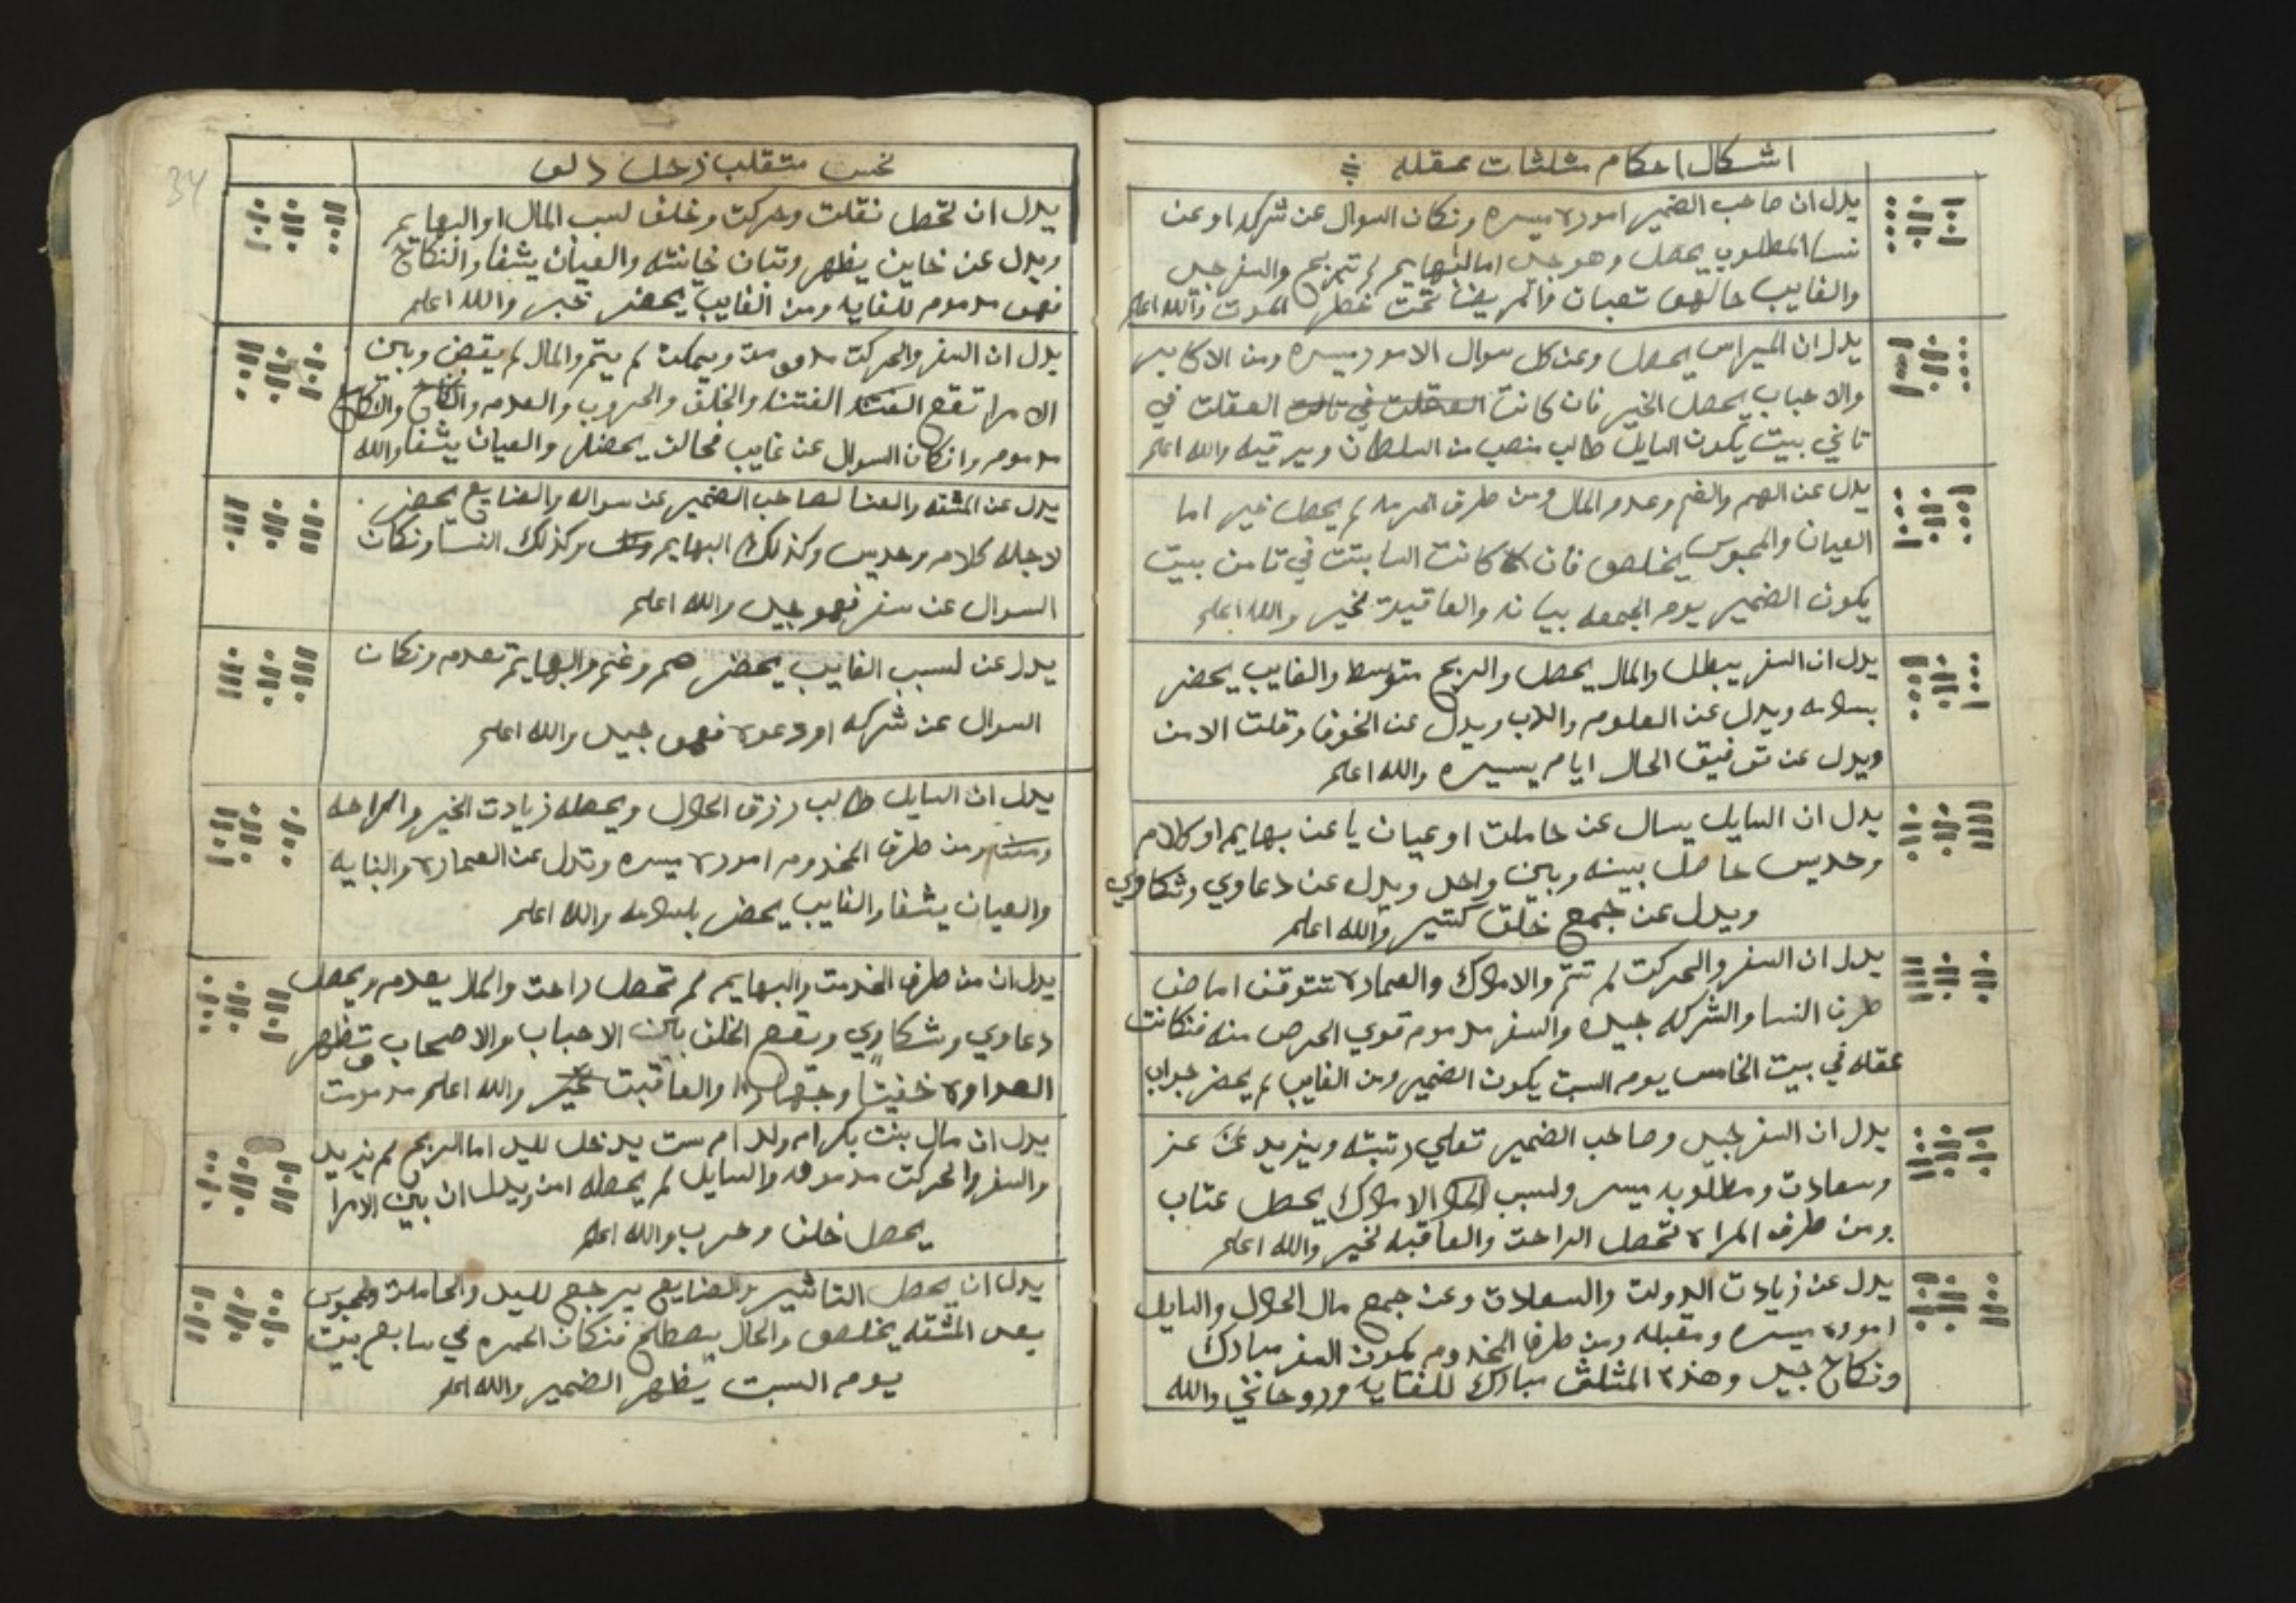 اشكال احكام مثلثات عقله
يدل ان صاحب الضمير اموره ميسره ونكان السوال عن شركه او عن
نسا المطلوب يحصل وهو جيد اما البهايم لم تربح والسفر جيد
والغايب حالهو تعبان والمريض تحت خطر الموت والله اعلم
يدل ان الميراس يحصل وعن كل سوال الامور ميسره ومن الاكابر
والاحباب يحصل الخير فان كانت العقلت في تالت العقلت في
تاني بيت يكون السايل طالب منصب من السلطان وير قيه والله اعلم
يدل عن الهم والغم وعدم المال ومن طرف الحرمه لم يحصل خير اما
العيان والمحبوس يخلصو فان كانت السابتت في تامن بيت
يكون الضمير يوم الجمعه بيانه والعاقبة لخير والله اعلم
يدل ان السفر يبطل والمال يحصل والربح متوسط والغايب يحضر
بسلامه ويدل عن العلوم والادب ويدل عن الخوف وقلت الامن
ويدل عن توفيق الحال ايام يسيره والله اعلم
يدل ان السايل يسال عن حاملت او عيان يا عن بهايم او كلام
وحديس حاصل بينه وبين واحد ويدل عن دعاوي وشكاوي
ويدل عن جمع خلق كتير والله اعلم
يدل ان السفر والحركت لم تتم والاملاك والعماره تتوقف اما من
طرف النسا والشركه جيده والسفر مدموم قوي الحرص منه فنكانت
عقله في بيت الخامس يوم السبت يكون الضمير ومن الغايب لم يحضر جواب
يدل ان السفر جيد وصاحب الضمير تعلي رتبته ويزيد عن عز
وسعادت ومطلوبه ميسر ولسبب الاملاك يحصل عتاب
ومن طرف المراه تحصل الراحت والعاقبه لخير والله اعلم
يدل عن زيادت الدولت والسعادت وعن جمع مال الحلال والسايل
اموره ميسره ومقبله ومن طرف المخدوم يكون السفر مبارك
ونكاح جيد وهذا المثلث مبارك للغايه وروحاني والله
34
نحس متقلب زحل دلو
يدل ان تحصل نقلت وحركت وخلف لسبب المال او البهايم
ويدل عن خاين يظهر وتبان خيانته والعيان يشفا والنكاح
فهو مدموم للغايه ومن الغايب يحضر خبر والله اعلم
يدل ان السفر والحركت مدمومت ويمكن لم يتم والمال لم يقبض وبين
الامرا تقع الفتنه الفتنه والخلف والحروب والعدم والنكاح والنكاح
مدموم وانكان السوال عن غايب فحالن يحضر والعيان يشفا والله
يدل عن المشقه والعنا لصاحب الضمير عن سواله والضايع يحضر
لاجله كلام وحديس وكذلك البهايم وكذلك النسا ونكان
السوال عن سفر فهو جيد والله اعلم
يدل عن لسبب الغايب يحضر هم وغم والبهايم تعدم ونكان
السوال عن شركه او دعوه فهو جيد والله اعلم
يدل ان السايل طالب رزق الحلال ويحصله زيادت الخير والراحه
ومن طرف المخدوم اموره ميسره وتدل عن العماره والبنايه
والعيان يشفا والغايب يحضر بسلامه والله اعلم
يدل ان من طرف الخدمت والبهايم لم تحصل راحت والمال يعدم ويحصل
دعاوي وشكاوي ويقع الخلف بين الاحباب والاصحاب وتظهر
العداوه خفيتا وجهارا والعاقبت والله اعلم مدمومت
يدل ان مال بنت بكر ام ولد ام ست يدخل لليد اما الربح لم يزيد
والسفر والحركت مدمومه والسايل لم يحصله امن ويدل ان بين الامرا
يحصل خلف وحرب والله اعلم
يدل ان يحصل التاشير والضايع يرجع لليد والحاملت والمحبوس
بعد المشقه يخلصو والحال يصطلح فنكان الحمره في سابع بيت
يوم السبت يظهر الضمير والله اعلم